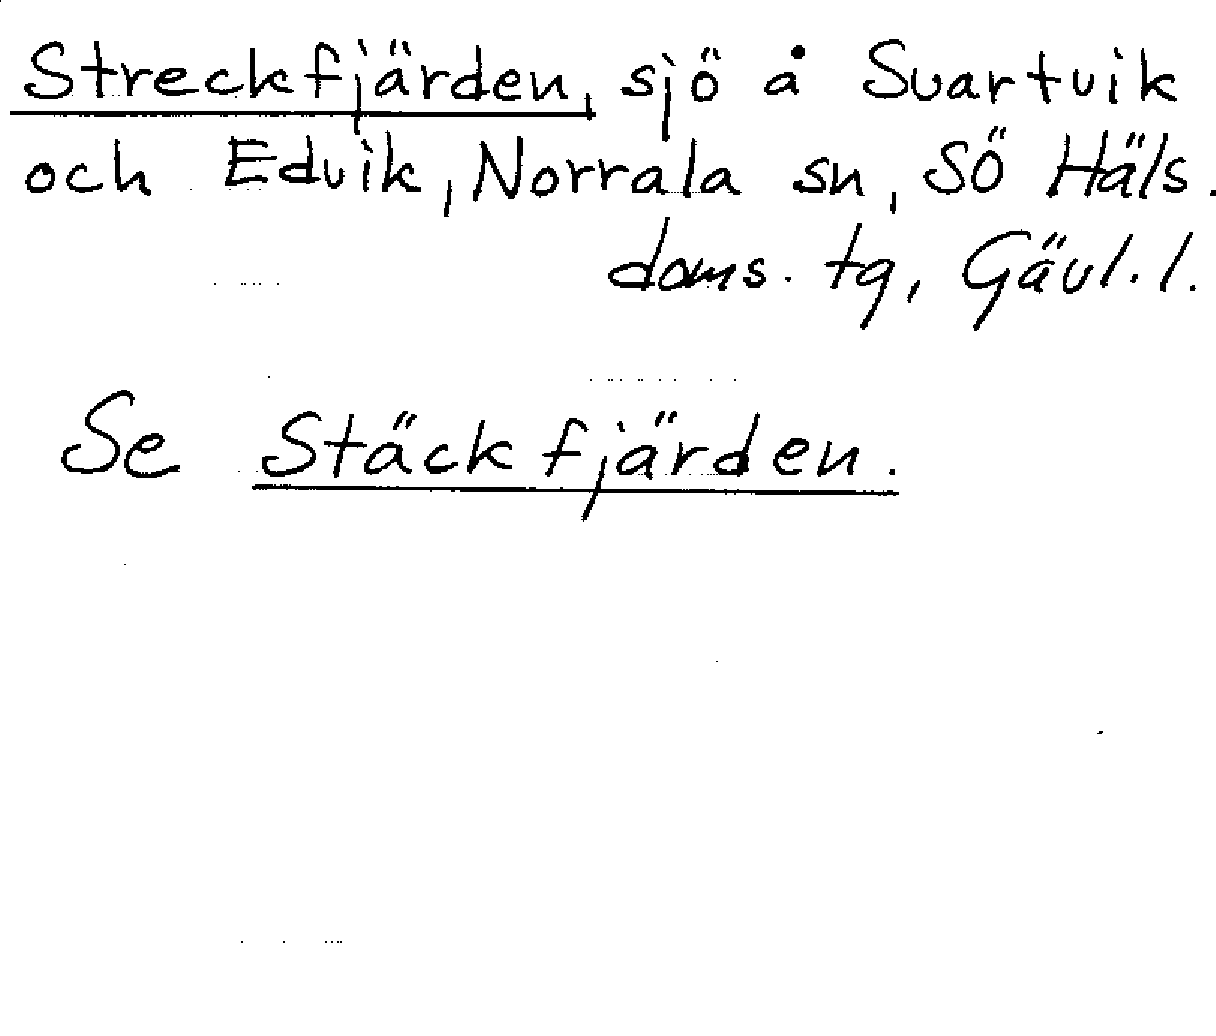 Streckfjärden, sjö å Svartvik
och Edvik, Norrala sn, Sö Häls.
doms. tg, Gävl. l.
Se Stäckfjärden.